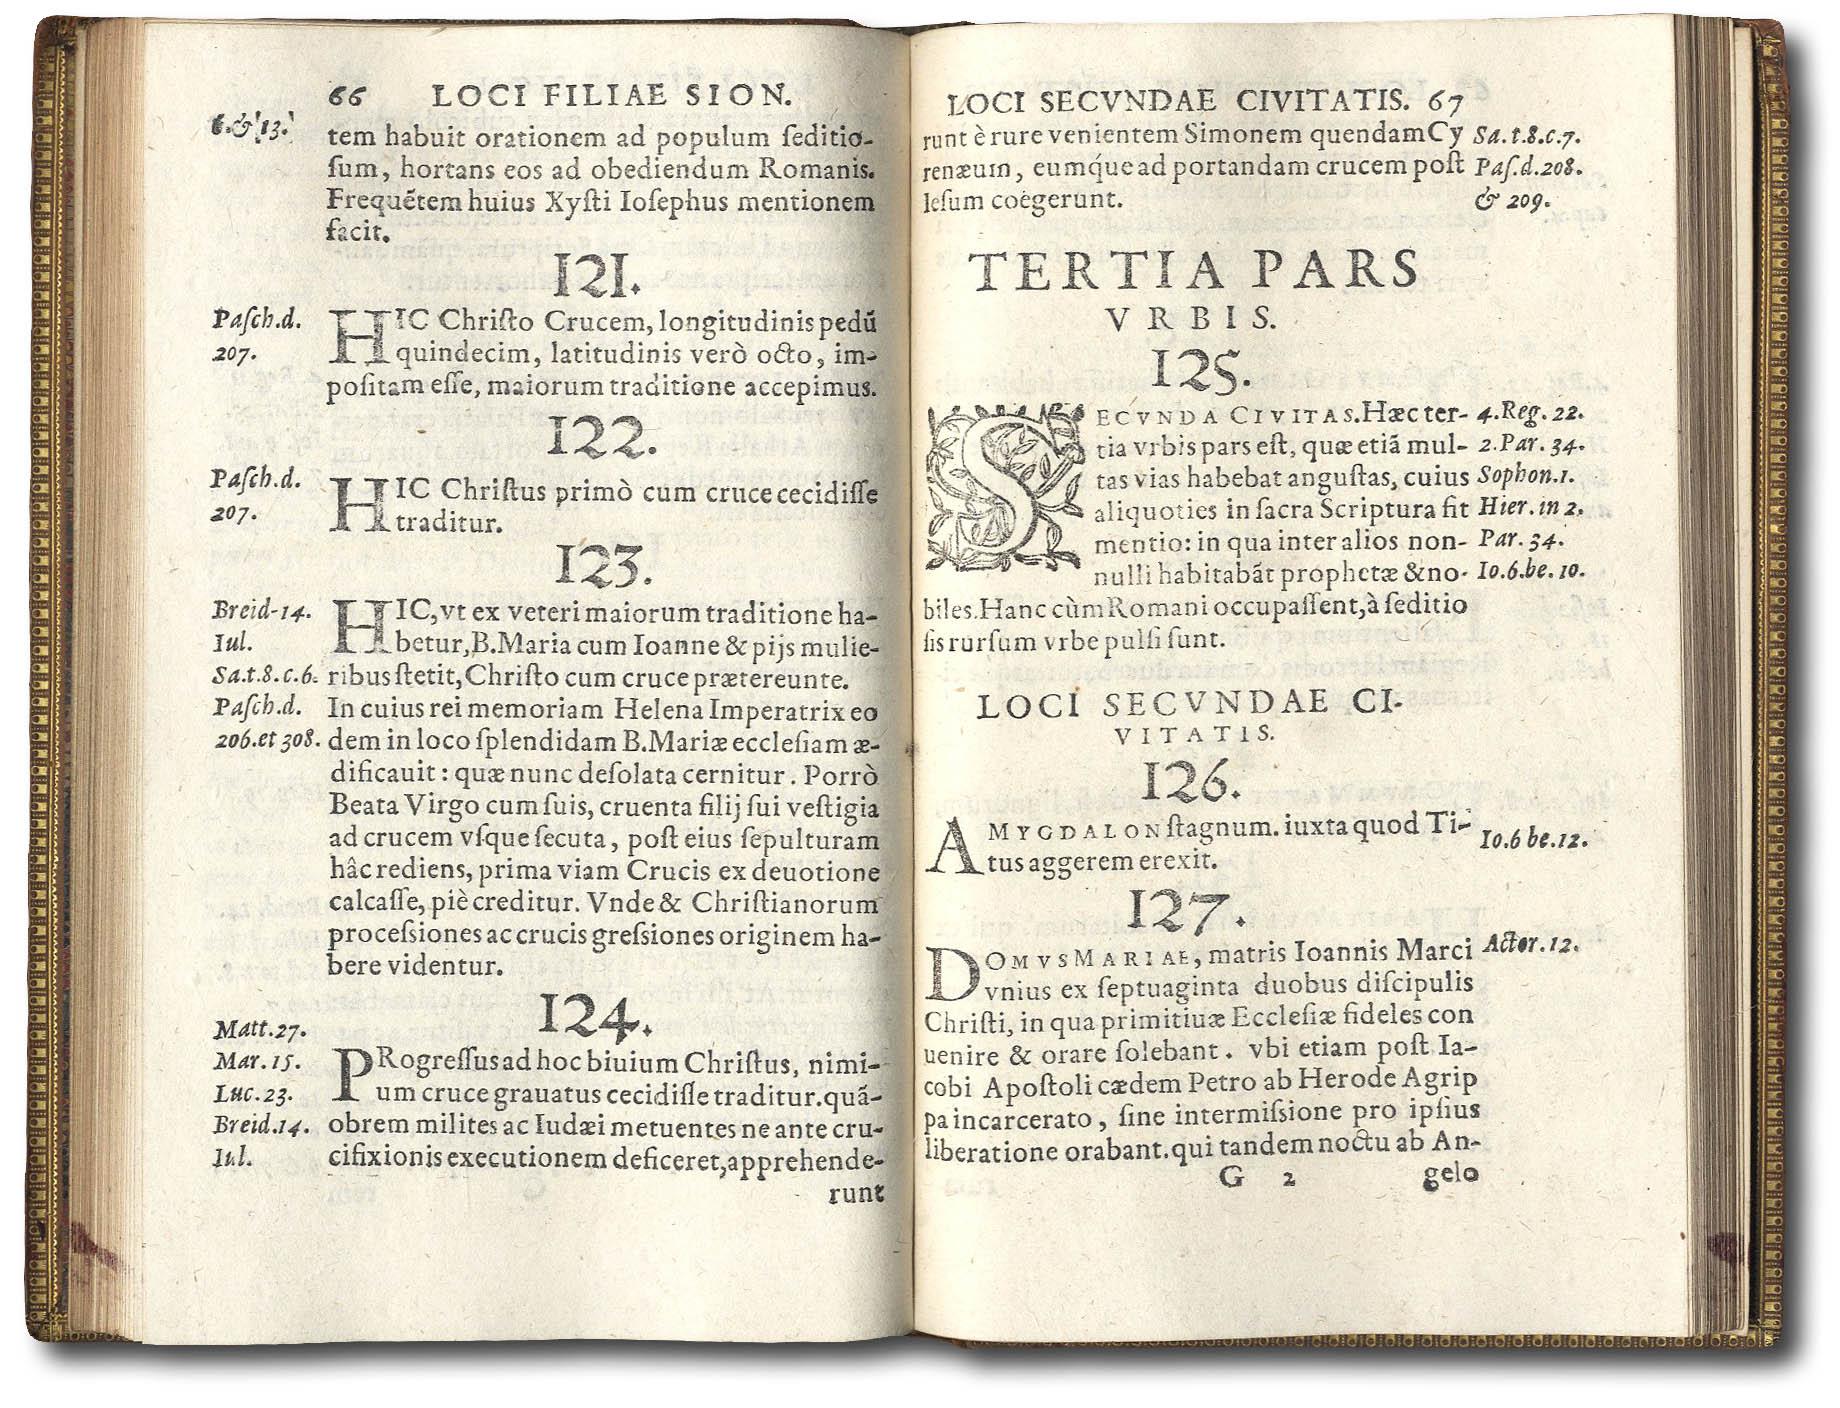 66 LOCI FILIAE SION.
6.&13.
tem habuit orationem ad populum ſeditio-
ſum, hortans eos ad obediendum Romanis.
Frequẽtem huius Xyſti Ioſephus mentionem
facit.
121.
Paſch.d.
207.
HIC Chriſto Crucem, longitudinis pedũ
quindecim, latitudinis verò octo, im-
poſitam eſſe, maiorum traditione accepimus.
122.
Paſch.d.
207.
HIC Chriſtus primò cum cruce cecidiſſe
traditur.
123.
Breid-14.
Iul.
Sa.t.8.c.6.
Paſch.d.
206.et 308.
HIC, vt ex veteri maiorum traditione ha-
betur, B.Maria cum Ioanne & pijs mulie-
ribus ſtetit, Chriſto cum cruce prætereunte.
In cuius rei memoriam Helena Imperatrix eo
dem in loco ſplendidam B.Mariæ eccleſiam æ-
dificauit : quæ nunc deſolata cernitur. Porrò
Beata Virgo cum ſuis, cruenta filij ſui veſtigia
ad crucem vſque ſecuta, poſt eius ſepulturam
hâc rediens, prima viam Crucis ex deuotione
calcaſſe, piè creditur. Vnde & Chriſtianorum
proceſsiones ac crucis greſsiones originem ha-
bere videntur.
124.
Matt.27.
Mar.15.
Luc.23.
Breid.14.
Iul.
PRogreſſus ad hoc biuium Chriſtus, nimi-
um cruce grauatus cecidiſſe traditur. quã-
obrem milites ac Iudæi metuentes ne ante cru-
cifixionis executionem deficeret, apprehende-
runt
LOCI SECVNDAE CIVITATIS. 67
runt è rure venientem Simonem quendam Cy
renæum, eumq́ue ad portandam crucem poſt
Ieſum coëgerunt.
Sa.t.8.c.7.
Paſ.d.208.
& 209.
TERTIA PARS
VRBIS.
125.
SECVNDA CIVITAS. Hæc ter-
tia vrbis pars eſt, quæ etiã mul-
tas vias habebat anguſtas, cuius
aliquoties in ſacra Scriptura fit
mentio: in qua inter alios non-
nulli habitabãt prophetæ & no-
biles. Hanc cùm Romani occupaſſent, à ſeditio
ſis rurſum vrbe pulſi ſunt.
4.Reg.22.
2.Par.34.
Sophon.1.
Hier.in 2.
Par.34.
Io.6.be.10.
LOCI SECVNDAE CI-
VITATIS.
126.
AMYGDALON ſtagnum. iuxta quod Ti-
tus aggerem erexit.
Io.6 be.12.
127.
DOMVS MARIAE, matris Ioannis Marci
vnius ex ſeptuaginta duobus diſcipulis
Chriſti, in qua primitiuæ Eccleſiæ fideles con
uenire & orare ſolebant. vbi etiam poſt Ia-
cobi Apoſtoli cædem Petro ab Herode Agrip
pa incarcerato, ſine intermiſsione pro ipſius
liberatione orabant. qui tandem noctu ab An-
Actor.12.
G 2 gelo